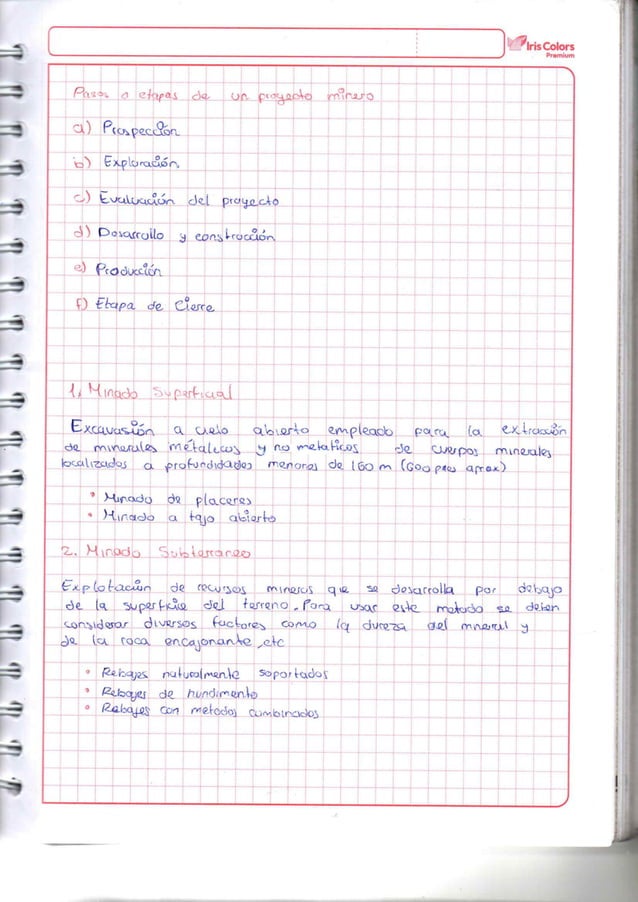 Iris Colors
Premium
Pasos o etapas de un proyecto minero
a) Prospección
b) Exploración
c) Evaluación del proyecto
d) Desarrollo y construcción
e) Producción
f) Etapa de Cierre
1. Minado Superficial
Excavasión a cielo abierto empleado para la extracción
de minerales métalicos y no metalicos de cuerpos minerales
localizados a profundidades menores de 160 m (600 pies aprox)
• Minado de placeres
• Minado a tajo abierto
2. Minado Subterraneo
Explotación de recursos mineros que se desarrolla por debajo
de la superficie del terreno. Para usar este metodo se deben
considerar diversos factores como la dureza del mineral y
de la roca encajonante, etc
• Rebajes naturalmente soportados
• Rebajes de hundimento
• Rebajes con metodos combinados